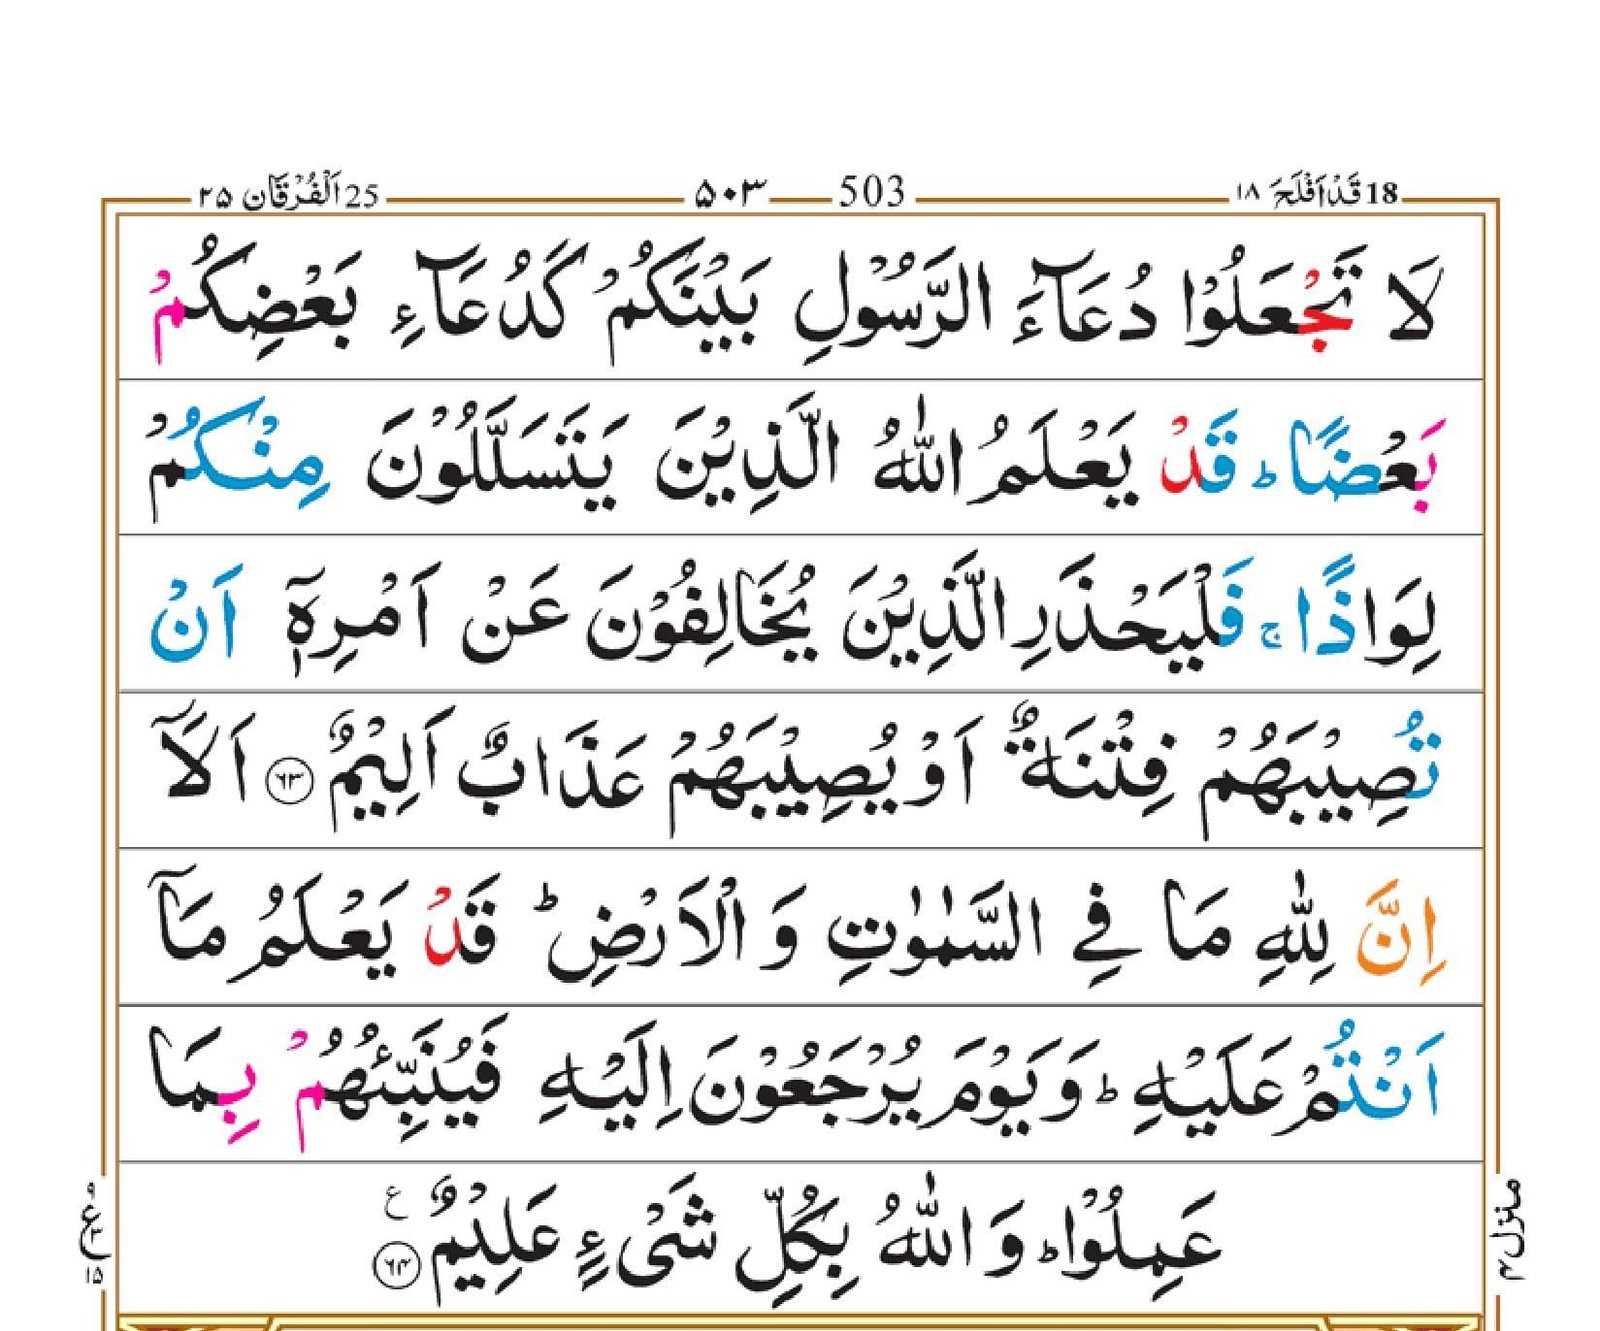 18 قَدْ اَفْلَحَ ١٨ 503 ۵۰۳ 25 اَلْفُرْقَان ٢۵
لَا تَجْعَلُوْا دُعَآءَ الرَّسُوْلِ بَيْنَكُمْ كَدُعَآءِ بَعْضِكُمْ
بَعْضًا ؕ قَدْ يَعْلَمُ اللّٰهُ الَّذِيْنَ يَتَسَلَّلُوْنَ مِنْكُمْ
لِوَاذًا ۚ فَلْيَحْذَرِ الَّذِيْنَ يُخَالِفُوْنَ عَنْ اَمْرِهٖۤ اَنْ
تُصِيْبَهُمْ فِتْنَةٌ اَوْ يُصِيْبَهُمْ عَذَابٌ اَلِيْمٌ ﴿۶۳﴾ اَلَاۤ
اِنَّ لِلّٰهِ مَا فِى السَّمٰوٰتِ وَ الْاَرْضِ ؕ قَدْ يَعْلَمُ مَاۤ
اَنْتُمْ عَلَيْهِ ؕ وَ يَوْمَ يُرْجَعُوْنَ اِلَيْهِ فَيُنَبِّئُهُمْ بِمَا
عَمِلُوْا ؕ وَ اللّٰهُ بِكُلِّ شَىْءٍ عَلِيْمٌ ﴿۶۴﴾ ع
منزل ۴
۹
ع ۳
۱۵